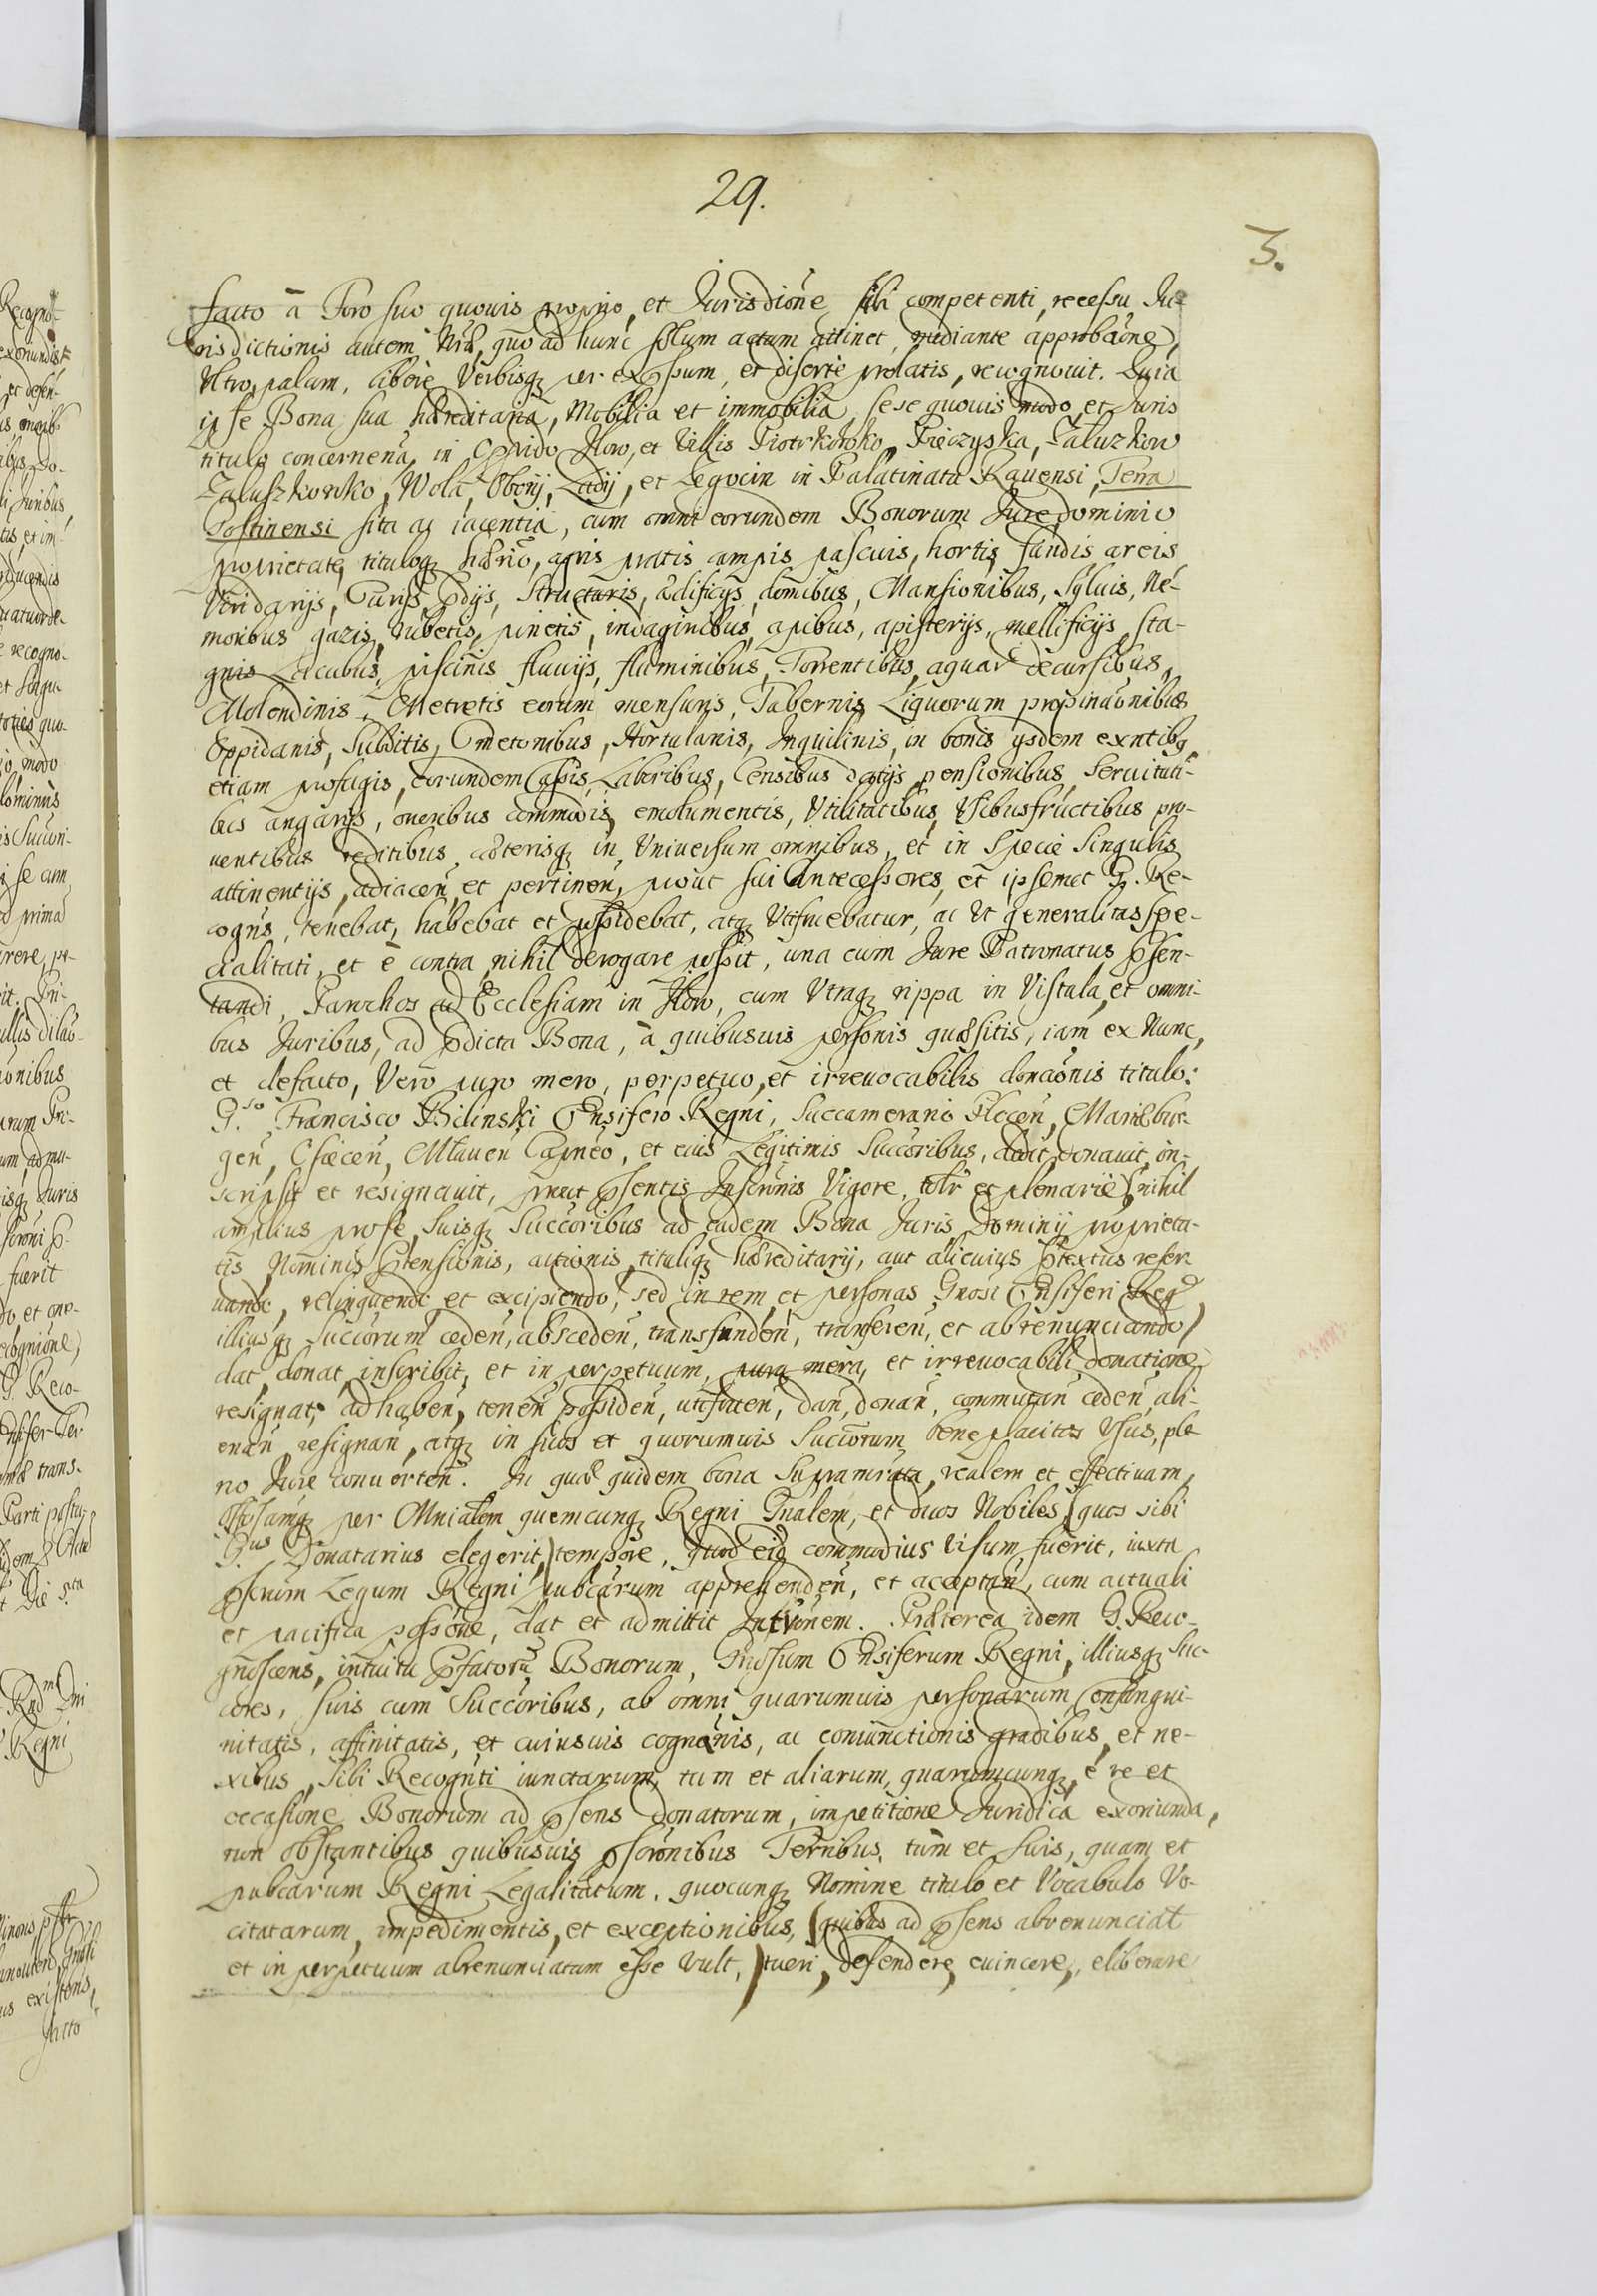 29.
3.
facto à Foro suo quovis proprio, et Jurisdiõne sibi competenti, recessu Ju-
risdictionis autem Nrã, quo ad hunc solum actum attinet, mediante approbaõne,
Ultro, palam, liberè Verbisq̃ per expssum, et disertè prolatis, recognovit. Quia
ipse Bona sua hæreditaria, Mobilia et immobilia, sese quovis modo, et Juris
titulo concernenã, in Oppido Iłow, et Villis Piotrkowko, Pieczyska, Załuzkow
Załuszkowko, Wola, Obory, Lady, et Legocin in Palatinatu Rauensi, Terra
Gostinensi sita ac iacentia, cum omni eorundem Bonorum Jure, dominio
proprietate, tituloq̃ hærio, agris pratis campis pascuis, hortis, fundis areis
Viridarijs, Curijs, pdijs, Structuris, ædificijs, domibus, Mansionibus, Sylvis, Ne-
moribus gazis, rubetis, pinetis, indaginibus, apibus, apisterijs, mellificijs, sta-
gnis Lacubus, piscinis fluvijs, fluminibus, Torrentibus, aquar decursibus,
Molendinis, Metretis eorum mensuris, Tabernis Liquorum propinaõnibus
Oppidanis, Subditis, Cmetonibus, Hortulanis, Inquilinis, in bonis ysdem exntibq̃
etiam profugis, eorundem Cassis, Laboribus, Censibus datijs, pensionibus, Servituti-
bus angarijs, oneribus commodis, emolumentis, Utilitatibus, Usibusfructibus pro-
ventibus reditibus, cæterisq̃ in Universum omnibus, et in Specie Singulis
attinentijs, adiacen̄ et pertinen̄, prout sui Antecessores, et ipsemet G. Re-
cogñs, tenebat, habebat et possidebat, atq̃ Utifruebatur, ac Ut generalitas spe-
cialitati, et è contra nihil derogare possit, una cum Jure Patronatus psen-
tandi, Parochos ad Ecclesiam in Iłow, cum Utraq̃ rippa in Vistula, et omni-
bus Juribus, ad pdicta Bona, à quibusvis personis quæsitis, iam ex Nunc,
et defacto, Vero puro mero, perpetuo, et irrevocabilis donaõnis titulo:
G.so Francisco Bilinski Ensifero Regni, Succamerario Plocen̄, Mariæbur-
gen̄, Osiecen̄, Mlaven̄ Capneo, et eius Legitimis Succoribus, dedit, donavit, in-
scripsit et resignavit, prout psentis Inscriõnis Vigore, totlr et plenariè (nihil
amplius prose, Suisq̃ Succoribus ad eadem Bona Juris, Dominij proprieta-
tis, Nominis, ptensionis, actionis, tituliq̃ hæreditarij, aut alicuius ptextus reser-
vando, relinquendo et excipiendo, sed in rem, et personas Grosi Ensiferi Reg
illiusq̃ Succorum ceden̄, absceden̄, transfunden̄, transferen̄, et abrenunciando)
dat, donat, inscribit, et in perpetuum, pura mera, et irrevocabili donatione
resignat, ad haben̄, tenen̄ possiden̄, utifruen̄, dan̄, donan̄, commutan̄ ceden̄, ali-
enan̄, resignan̄, atq̃ in suos et quorumvis Succorum beneplacitos Usus, ple
no Jure converten̄. In quæ quidem bona Supramrata, realem et effectivam,
per Mnialem quemcunq̃ Regni Gnalem, et duos Nobiles, (quos sibi
G.us Donatarius elegerit,) tempore, quod eid commodius visum fuerit, iuxta
pscrum Legum Regni pubcarum apprehenden̄, et acceptan̄, cum actuali
et pacifica possone, dat et admittit Intronem. Præterea idem G. Reco-
gnoscens, intuitu pfatoru Bonorum, Grosum Ensiferum Regni, illiusq̃ Suc-
cores, suis cum Succoribus, ab omni quarumvis personarum, Consangui-
nitatis, affinitatis, et cuiusvis cognaõnis, ac coniunctionis gradibus, et ne-
xibus, Sibi Recognti iunctarum, tum et aliarum, quarumcunq̃, è re et
occasione Bonorum ad psens donatorum, impetitione Juridica exoriunda,
non obstantibus quibusvis pscronibus Terribus, tum et suis, quam et
pubcarum Regni Legalitatum, quocunq̃ Nomine titulo et Vocabulo Vo-
citatarum, impedimentis, et exceptionibus, (quibus ad psens abrenunciat
et in perpetuum abrenunciatum esse vult,) tueri, defendere, evincere, eliberare